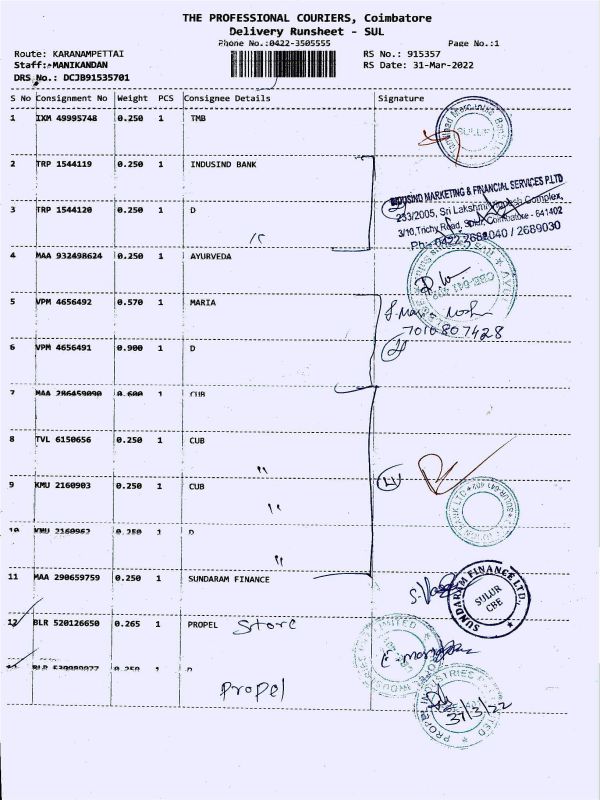 THE PROFESSIONAL COURIERS, Coimbatore
Delivery Runsheet - SUL
Phone No.:0422-3505555 Page No.:1
Route: KARANAMPETTAI RS No.: 915357
Staff: MANIKANDAN RS Date: 31-Mar-2022
DRS No.: DCJB91535701
S No Consignment No Weight PCS Consignee Details Signature
1 IXM 49995748 0.250 1 TMB
SULUR
2 TRP 1544119 0.250 1 INDUSIND BANK
INDUSIND MARKETING & FINANCIAL SERVICES P.LTD
233/2005, Sri Lakshmi Complex,
3 TRP 1544120 0.250 1 D
3/10, Trichy Road, Sulur, Coimbatore - 641402
Ph: 0422 2682040 / 2689030
4 MAA 932498624 0.250 1 AYURVEDA
5 VPM 4656492 0.570 1 MARIA
7010807428
6 VPM 4656491 0.900 1 D
7 MAA 286459090 0.600 1 CUB
8 TVL 6150656 0.250 1 CUB
9 KMU 2160903 0.250 1 CUB
10 KMU 2160962 0.250 1 D
11 MAA 290659759 0.250 1 SUNDARAM FINANCE
SUNDARAM FINANCE LTD.,
SULUR
CBE
12 BLR 520126650 0.265 1 PROPEL Store
0.250 1 D
Propel
PROPEL INDUSTRIES
31/3/22